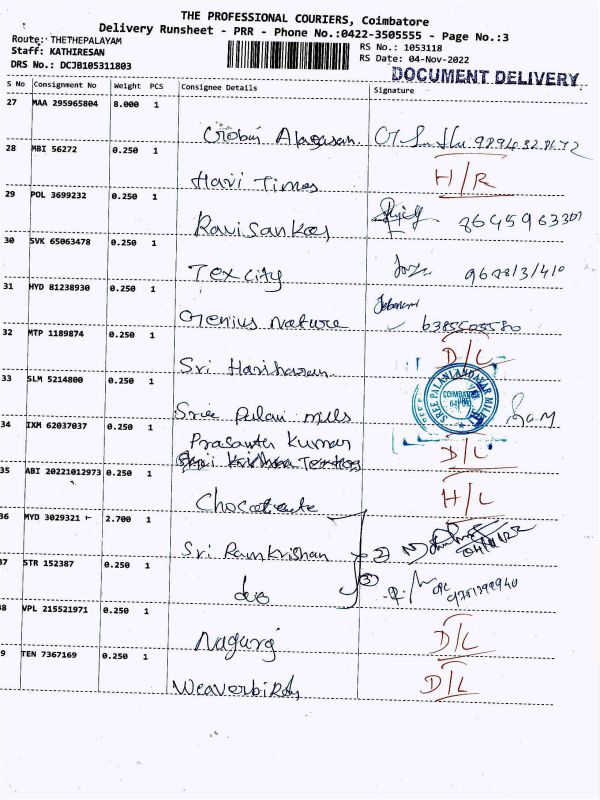 THE PROFESSIONAL COURIERS, Coimbatore
Delivery Runsheet - PRR - Phone No.:0422-3505555 - Page No.:3
Route: THETHEPALAYAM
RS No.: 1053118
Staff: KATHIRESAN
RS Date: 04-Nov-2022
DRS No.: DCJB105311803
DOCUMENT DELIVERY
S No Consignment No Weight PCS Consignee Details Signature
27 MAA 295965804 8.000 1
28 MBI 56272 0.250 1
Hari Times H/R
29 POL 3699232 0.250 1
Ravisankar
30 SVK 65063478 0.250 1
Tex city
31 HYD 81238930 0.250 1
Genius nature
32 MTP 1189874 0.250 1
Sri Hariharan D/L
33 SLM 5214800 0.250 1
SREE PALANI ANDAVAR MILLS
COIMBATORE
Sree Palani mills
34 IXM 62037037 0.250 1
Prasanth Kumar
D/L
35 ABI 20221012973 0.250 1
H/L
36 MYD 3029321 2.700 1
Sri Ramkrishan
37 STR 152387 0.250 1
do
38 VPL 215521971 0.250 1
Nagaraj D/L
39 TEN 7367169 0.250 1
Weaverbirds D/L